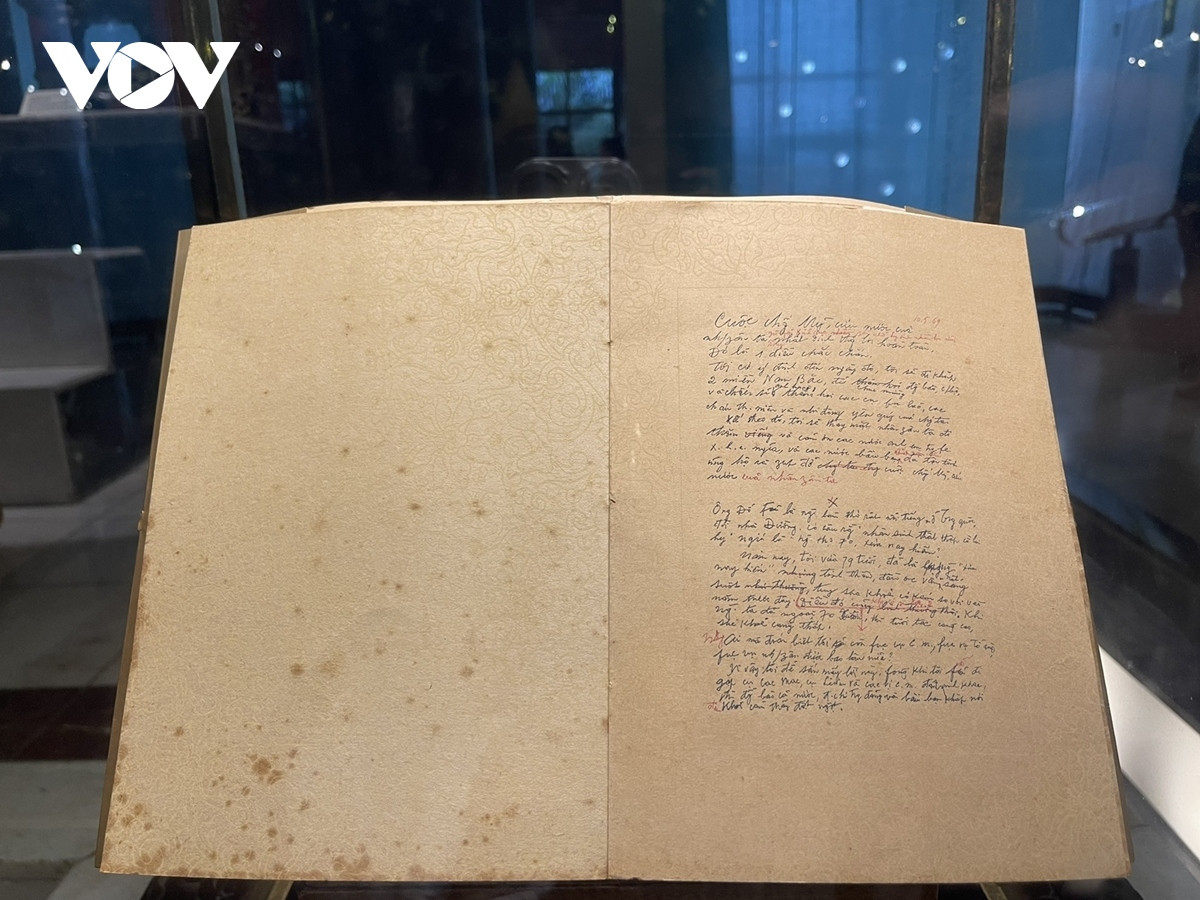 VOV
10.5.69
Cuộc chống Mỹ, cứu nước của
nh/zân ta nhất định thắng lợi hoàn toàn.
Đó là 1 điều chắc chắn.
Tôi có ý định đến ngày đó, tôi sẽ đi khắp
2 miền Nam Bắc, để chúc mừng
thăm hỏi các cụ fụ lão, các
cháu th. niên và nhi đồng yêu quý của chúng ta
Kế theo đó, tôi sẽ thay mặt nhân zân ta đi
thăm viếng và cảm ơn các nước anh em
x. h. c. nghĩa, và các nước bầu bạn
ủng hộ và zúp đỡ cuộc chống Mỹ, cứu
nước của nhân zân ta
X
Ông Đỗ Fủ là người làm thơ rất nổi tiếng ở Trung quốc,
đời nhà Đường, có câu rằng "nhân sinh thất thập cổ lai
hy" nghĩa là "người thọ 70, xưa nay hiếm"
Năm nay, tôi vừa 79 tuổi, đã là "xưa
nay hiếm" nhưng tinh thần, đầu óc vẫn sáng
suốt, tuy sức khoẻ có kém so với vài
năm trước đây. Khi
người ta đã ngoài 70 xuân, thì tuổi tác càng cao,
sức khoẻ càng thấp.
Nhưng ai mà đoán biết tôi sẽ còn fục vụ
fục vụ nh/zân được bao lâu nữa?
Vì vậy tôi để sẵn mấy lời này, fòng khi tôi đi
gặp cụ Các Mác, cụ Lênin và các vị c. m. đàn anh khác,
thì đồng bào cả nước, đ. chí trong đảng và bầu bạn khắp nơi
đều khỏi cảm thấy đột ngột.